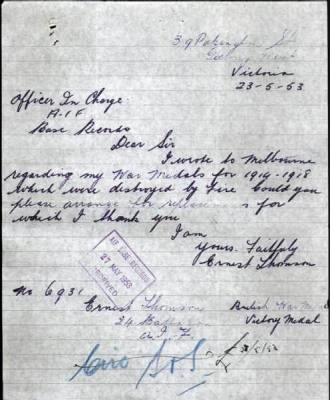 39 Pakington St
Geelong West
Victoria
23-5-53
Officer In Charge
A.I.F
Base Records
Dear Sir
I wrote to Melbourne
regarding my War Medals for 1914-1918
Which were distroyed by Fire Could you
please arrange for for
which I thank you
I am
yours. Faithfuly
Ernest Thomson
AIF BASE RECORDS
27 MAY 1953
RECEIVED
No 6931
Ernest Thomson
24 Battalion
A.I.F.
British War Medal
Victory Medal